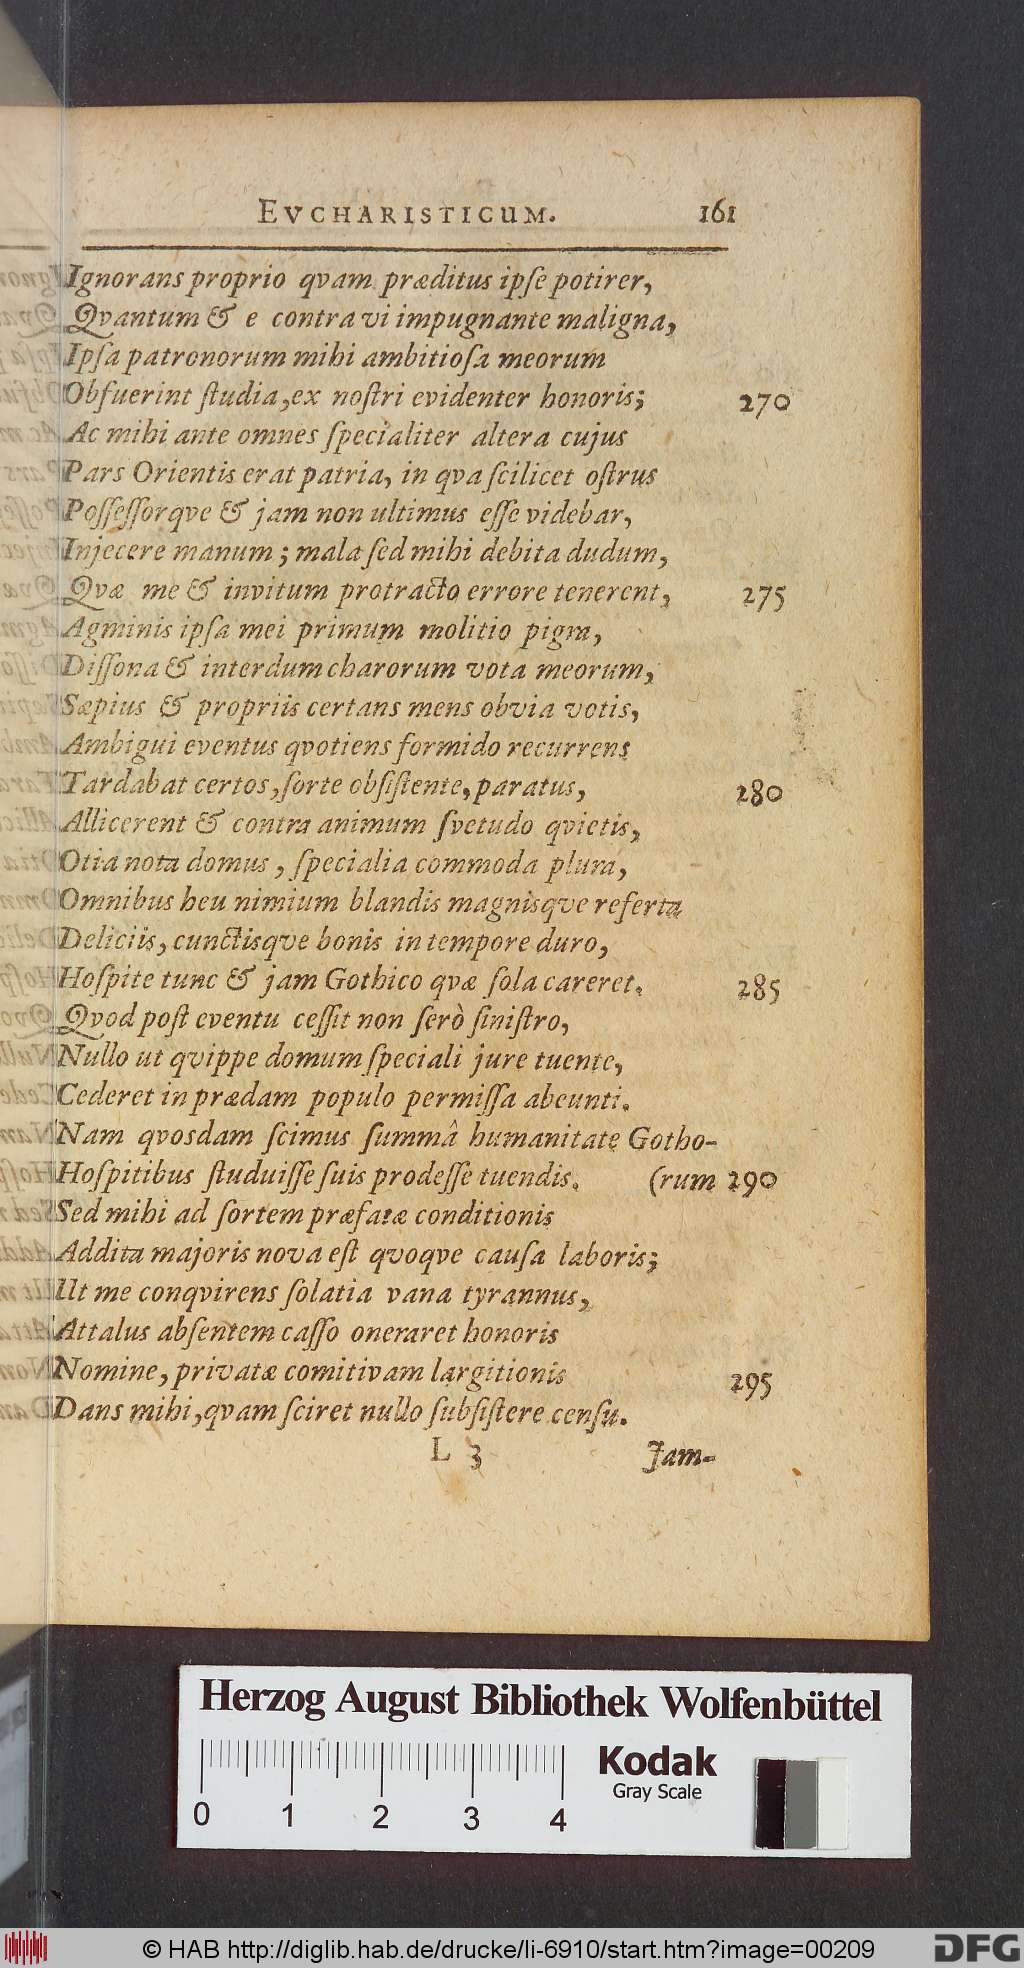 EVCHARISTICUM. 161
Ignorans proprio qvam præditus ipſe potirer,
Qvantum & e contra vi impugnante maligna,
Ipſa patronorum mihi ambitioſa meorum
Obfuerint ſtudia, ex noſtri evidenter honoris; 270
Ac mihi ante omnes ſpecialiter altera cujus
Pars Orientis erat patria, in qva ſcilicet oſtrus
Poſſeſſorqve & jam non ultimus eſſe videbar,
Injecere manum; mala ſed mihi debita dudum,
Qvæ me & invitum protracto errore tenerent, 275
Agminis ipſa mei primum molitio pigra,
Diſſona & interdum charorum vota meorum,
Sæpius & propriis certans mens obvia votis,
Ambigui eventus qvotiens formido recurrens
Tardabat certos, ſorte obſiſtente, paratus, 280
Allicerent & contra animum ſvetudo qvietis,
Otia nota domus, ſpecialia commoda plura,
Omnibus heu nimium blandis magnisqve referta
Deliciis, cunctisqve bonis in tempore duro,
Hoſpite tunc & jam Gothico qvæ ſola careret. 285
Qvod poſt eventu ceſſit non ſerò ſiniſtro,
Nullo ut qvippe domum ſpeciali jure tuente,
Cederet in prædam populo permiſſa abeunti.
Nam qvosdam ſcimus ſummâ humanitate Gotho-
Hoſpitibus ſtuduiſſe ſuis prodeſſe tuendis. (rum 290
Sed mihi ad ſortem præfatæ conditionis
Addita majoris nova eſt qvoqve cauſa laboris;
Ut me conqvirens ſolatia vana tyrannus,
Attalus abſentem caſſo oneraret honoris
Nomine, privatæ comitivam largitionis 295
Dans mihi, qvam ſciret nullo ſubſiſtere cenſu.
L 3 Jam-
Herzog August Bibliothek Wolfenbüttel
Kodak
Gray Scale
0 1 2 3 4
© HAB http://diglib.hab.de/drucke/li-6910/start.htm?image=00209
DFG